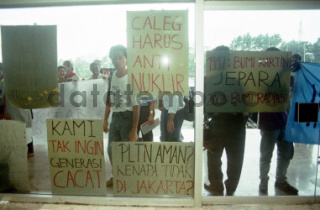 CALEG
HARUS
ANTI
NUKLIR
BUMI KARTINI
JEPARA
BUMI
datatempo
KAMI
TAK INGIN
GENERASI
CACAT
PLTN AMAN?
KENAPA TIDAK
DI JAKARTA?